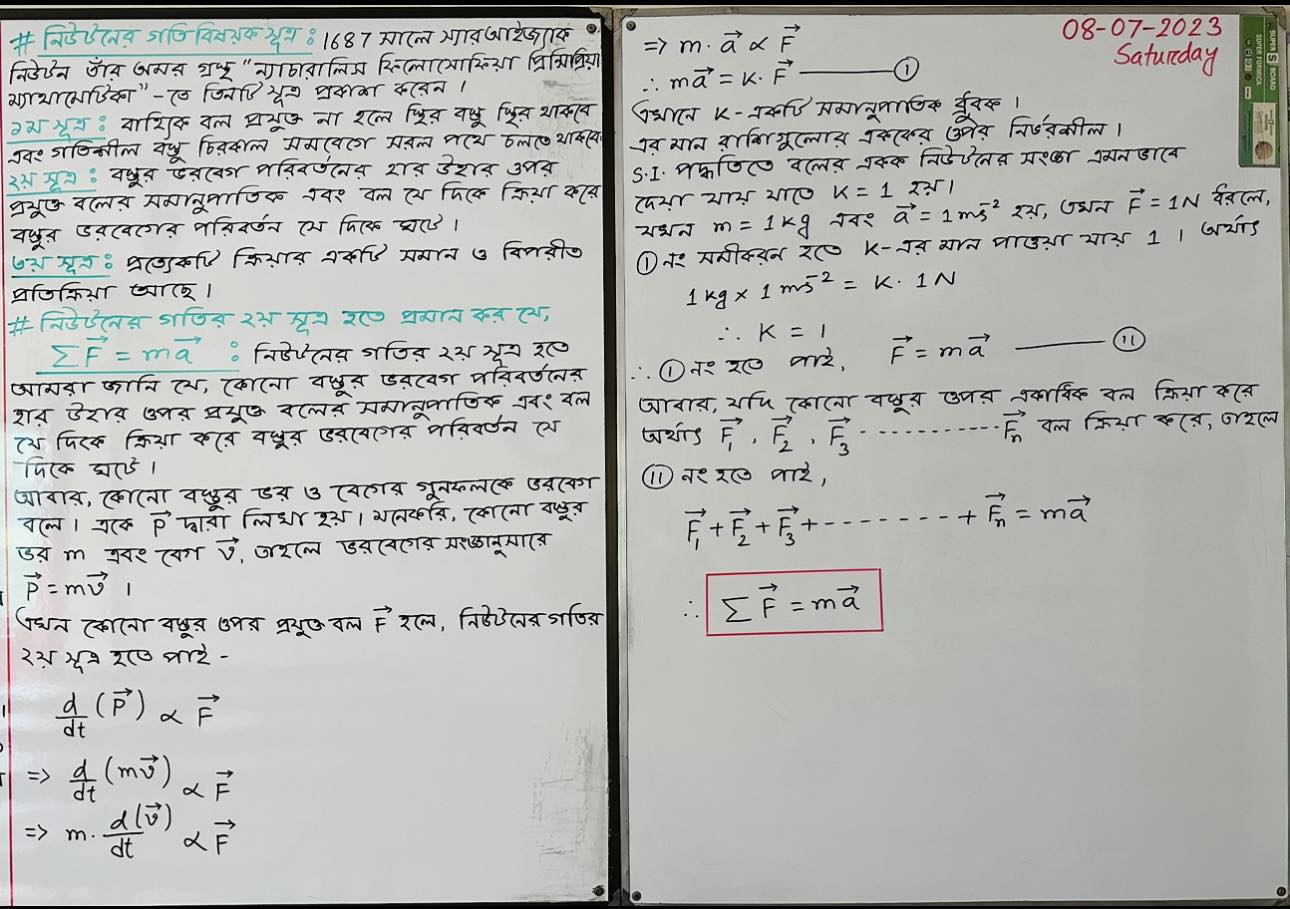 # নিউটনের গতি বিষয়ক সূত্র : 1687 সালে স্যার আইজ্যাক
নিউটন তাঁর অমর গ্রন্থ "ন্যাচারালিস ফিলোসোফিয়া প্রিন্সিপিয়া
ম্যাথামেটিকা"-তে তিনটি সূত্র প্রকাশ করেন ।
১ম সূত্র : বাহ্যিক বল প্রযুক্ত না হলে স্থির বস্তু স্থির থাকবে
এবং গতিশীল বস্তু চিরকাল সমবেগে সরল পথে চলতে থাকবে।
২য় সূত্র : বস্তুর ভরবেগ পরিবর্তনের হার উহার ওপর
প্রযুক্ত বলের সমানুপাতিক এবং বল যে দিকে ক্রিয়া করে
বস্তুর ভরবেগের পরিবর্তন সে দিকে ঘটে ।
৩য় সূত্র : প্রত্যেকটি ক্রিয়ার একটি সমান ও বিপরীত
প্রতিক্রিয়া আছে ।
# নিউটনের গতির ২য় সূত্র হতে প্রমান কর যে,
∑F⃗ = ma⃗ : নিউটনের গতির ২য় সূত্র হতে
আমরা জানি যে, কোনো বস্তুর ভরবেগ পরিবর্তনের
হার উহার ওপর প্রযুক্ত বলের সমানুপাতিক এবং বল
যে দিকে ক্রিয়া করে বস্তুর ভরবেগের পরিবর্তন সে
দিকে ঘটে ।
আবার, কোনো বস্তুর ভর ও বেগের গুনফলকে ভরবেগ
বলে । একে P⃗ দ্বারা লিখা হয় । মনেকরি, কোনো বস্তুর
ভর m এবং বেগ v⃗, তাহলে ভরবেগের সংজ্ঞানুসারে
P⃗ = mv⃗ ।
এখন কোনো বস্তুর ওপর প্রযুক্ত বল F⃗ হলে, নিউটনের গতির
২য় সূত্র হতে পাই -
d/dt (P⃗) ∝ F⃗
=> d/dt (mv⃗) ∝ F⃗
=> m. d(v⃗)/dt ∝ F⃗
08-07-2023
Saturday
=> m. a⃗ ∝ F⃗
∴ ma⃗ = K. F⃗ ——— (I)
এখানে K-একটি সমানুপাতিক ধ্রুবক ।
এর মান রাশিগুলোর এককের ওপর নির্ভরশীল ।
S.I. পদ্ধতিতে বলের একক নিউটনের সংজ্ঞা এমনভাবে
দেয়া যায় যাতে K = 1 হয় ।
যখন m = 1kg এবং a⃗ = 1ms⁻² হয়, তখন F⃗ = 1N ধরলে,
(I) নং সমীকরন হতে K-এর মান পাওয়া যায় 1 । অর্থাৎ
1kg × 1ms⁻² = K. 1N
∴ K = 1
∴ (I) নং হতে পাই, F⃗ = ma⃗ ——— (II)
আবার, যদি কোনো বস্তুর ওপর একাধিক বল ক্রিয়া করে
অর্থাৎ F⃗₁, F⃗₂, F⃗₃ ----------- F⃗n বল ক্রিয়া করে, তাহলে
(II) নং হতে পাই,
F⃗₁ + F⃗₂ + F⃗₃ + -------- + F⃗n = ma⃗
∴ ∑F⃗ = ma⃗